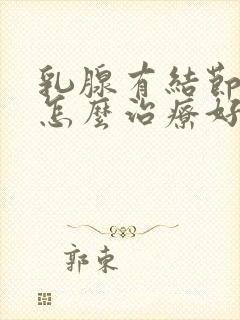 乳腺有結節
怎麼治療好
郭東